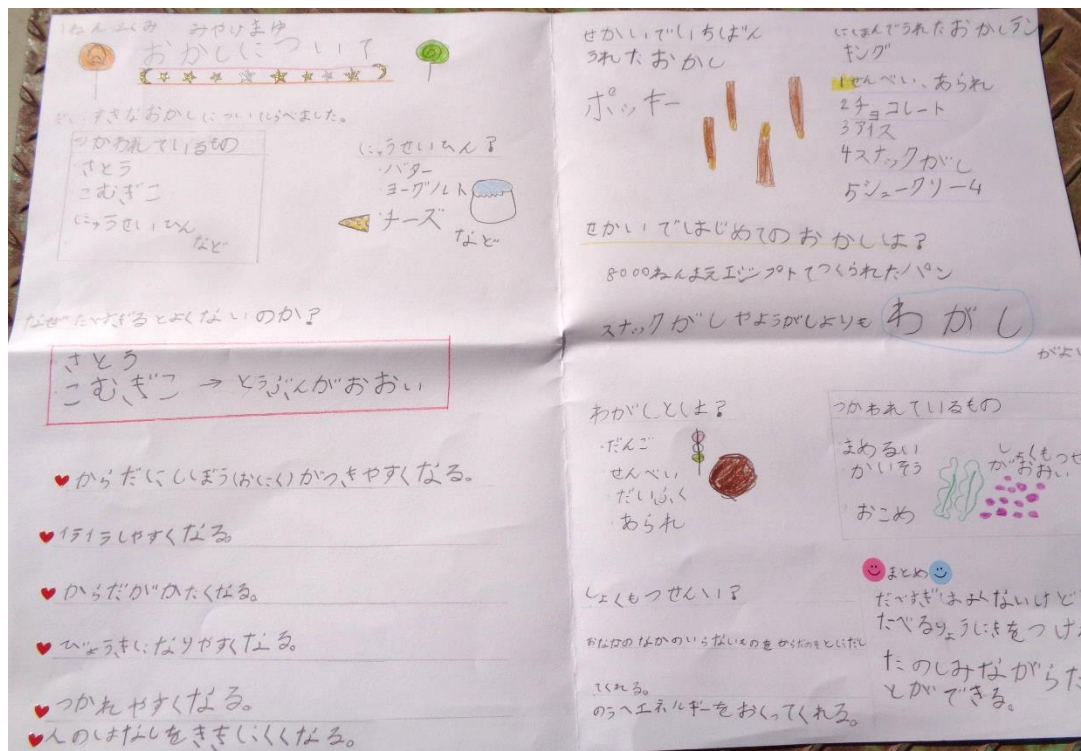 1ねん ふくみ みやけまゆ
おかしについて
すきなおかしについてしらべました。
つかわれているもの
さとう
こむぎこ
にゅうせいひん
など
にゅうせいひん?
・バター
・ヨーグルト
・チーズ
など
なぜたべすぎるとよくないのか?
さとう
こむぎこ → とうぶんがおおい
からだにしぼう(おにく)がつきやすくなる。
イライラしやすくなる。
からだがかたくなる。
びょうきになりやすくなる。
つかれやすくなる。
人のはなしをききにくくなる。
せかいでいちばん
うれたおかし
ポッキー
にほんでうれたおかしラン
キング
1せんべい、あられ
2チョコレート
3アイス
4スナックがし
5シュークリーム
せかいではじめてのおかしは?
8000ねんまえエジプトでつくられたパン
スナックがしやようがしよりも わがし
がよい
わがしとは?
・だんご
せんべい
だいふく
・あられ
つかわれているもの
まめるい
かいそう
おこめ
しょくもつせ
がおおい
しょくもつせんい?
おなかのなかのいらないものをからだのそとにだし
てくれる。
のうへエネルギーをおくってくれる。
まとめ
たべすぎはよくないけど
たべるりょうにきをつけ
たのしみながらた
とができる。